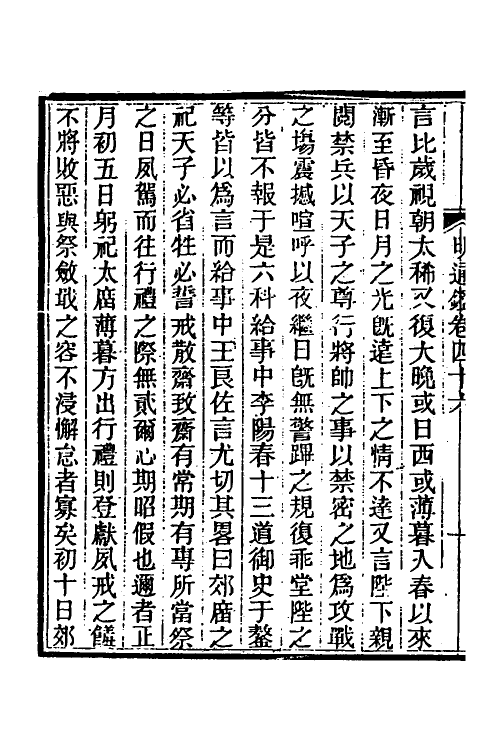 明通鑑卷四十六
一
言比歲視朝太稀又復大晚或日西或薄暮入春以來
漸至昏夜日月之光旣遠上下之情不達又言陛下親
閱禁兵以天子之尊行將帥之事以禁密之地爲攻戰
之塲震撼喧呼以夜繼日旣無警蹕之規復乖堂陛之
分皆不報于是六科給事中李陽春十三道御史于鏊
等皆以爲言而給事中王良佐言尤切其畧曰郊廟之
祀天子必省牲必誓戒散齋致齋有常期有專所當祭
之日夙駕而往行禮之際無貳爾心期昭假也邇者正
月初五日躬祀太廟薄暮方出行禮則登獻夙戒之饎
不將敗惡與祭斂戢之容不浸懈怠者寡矣初十日郊